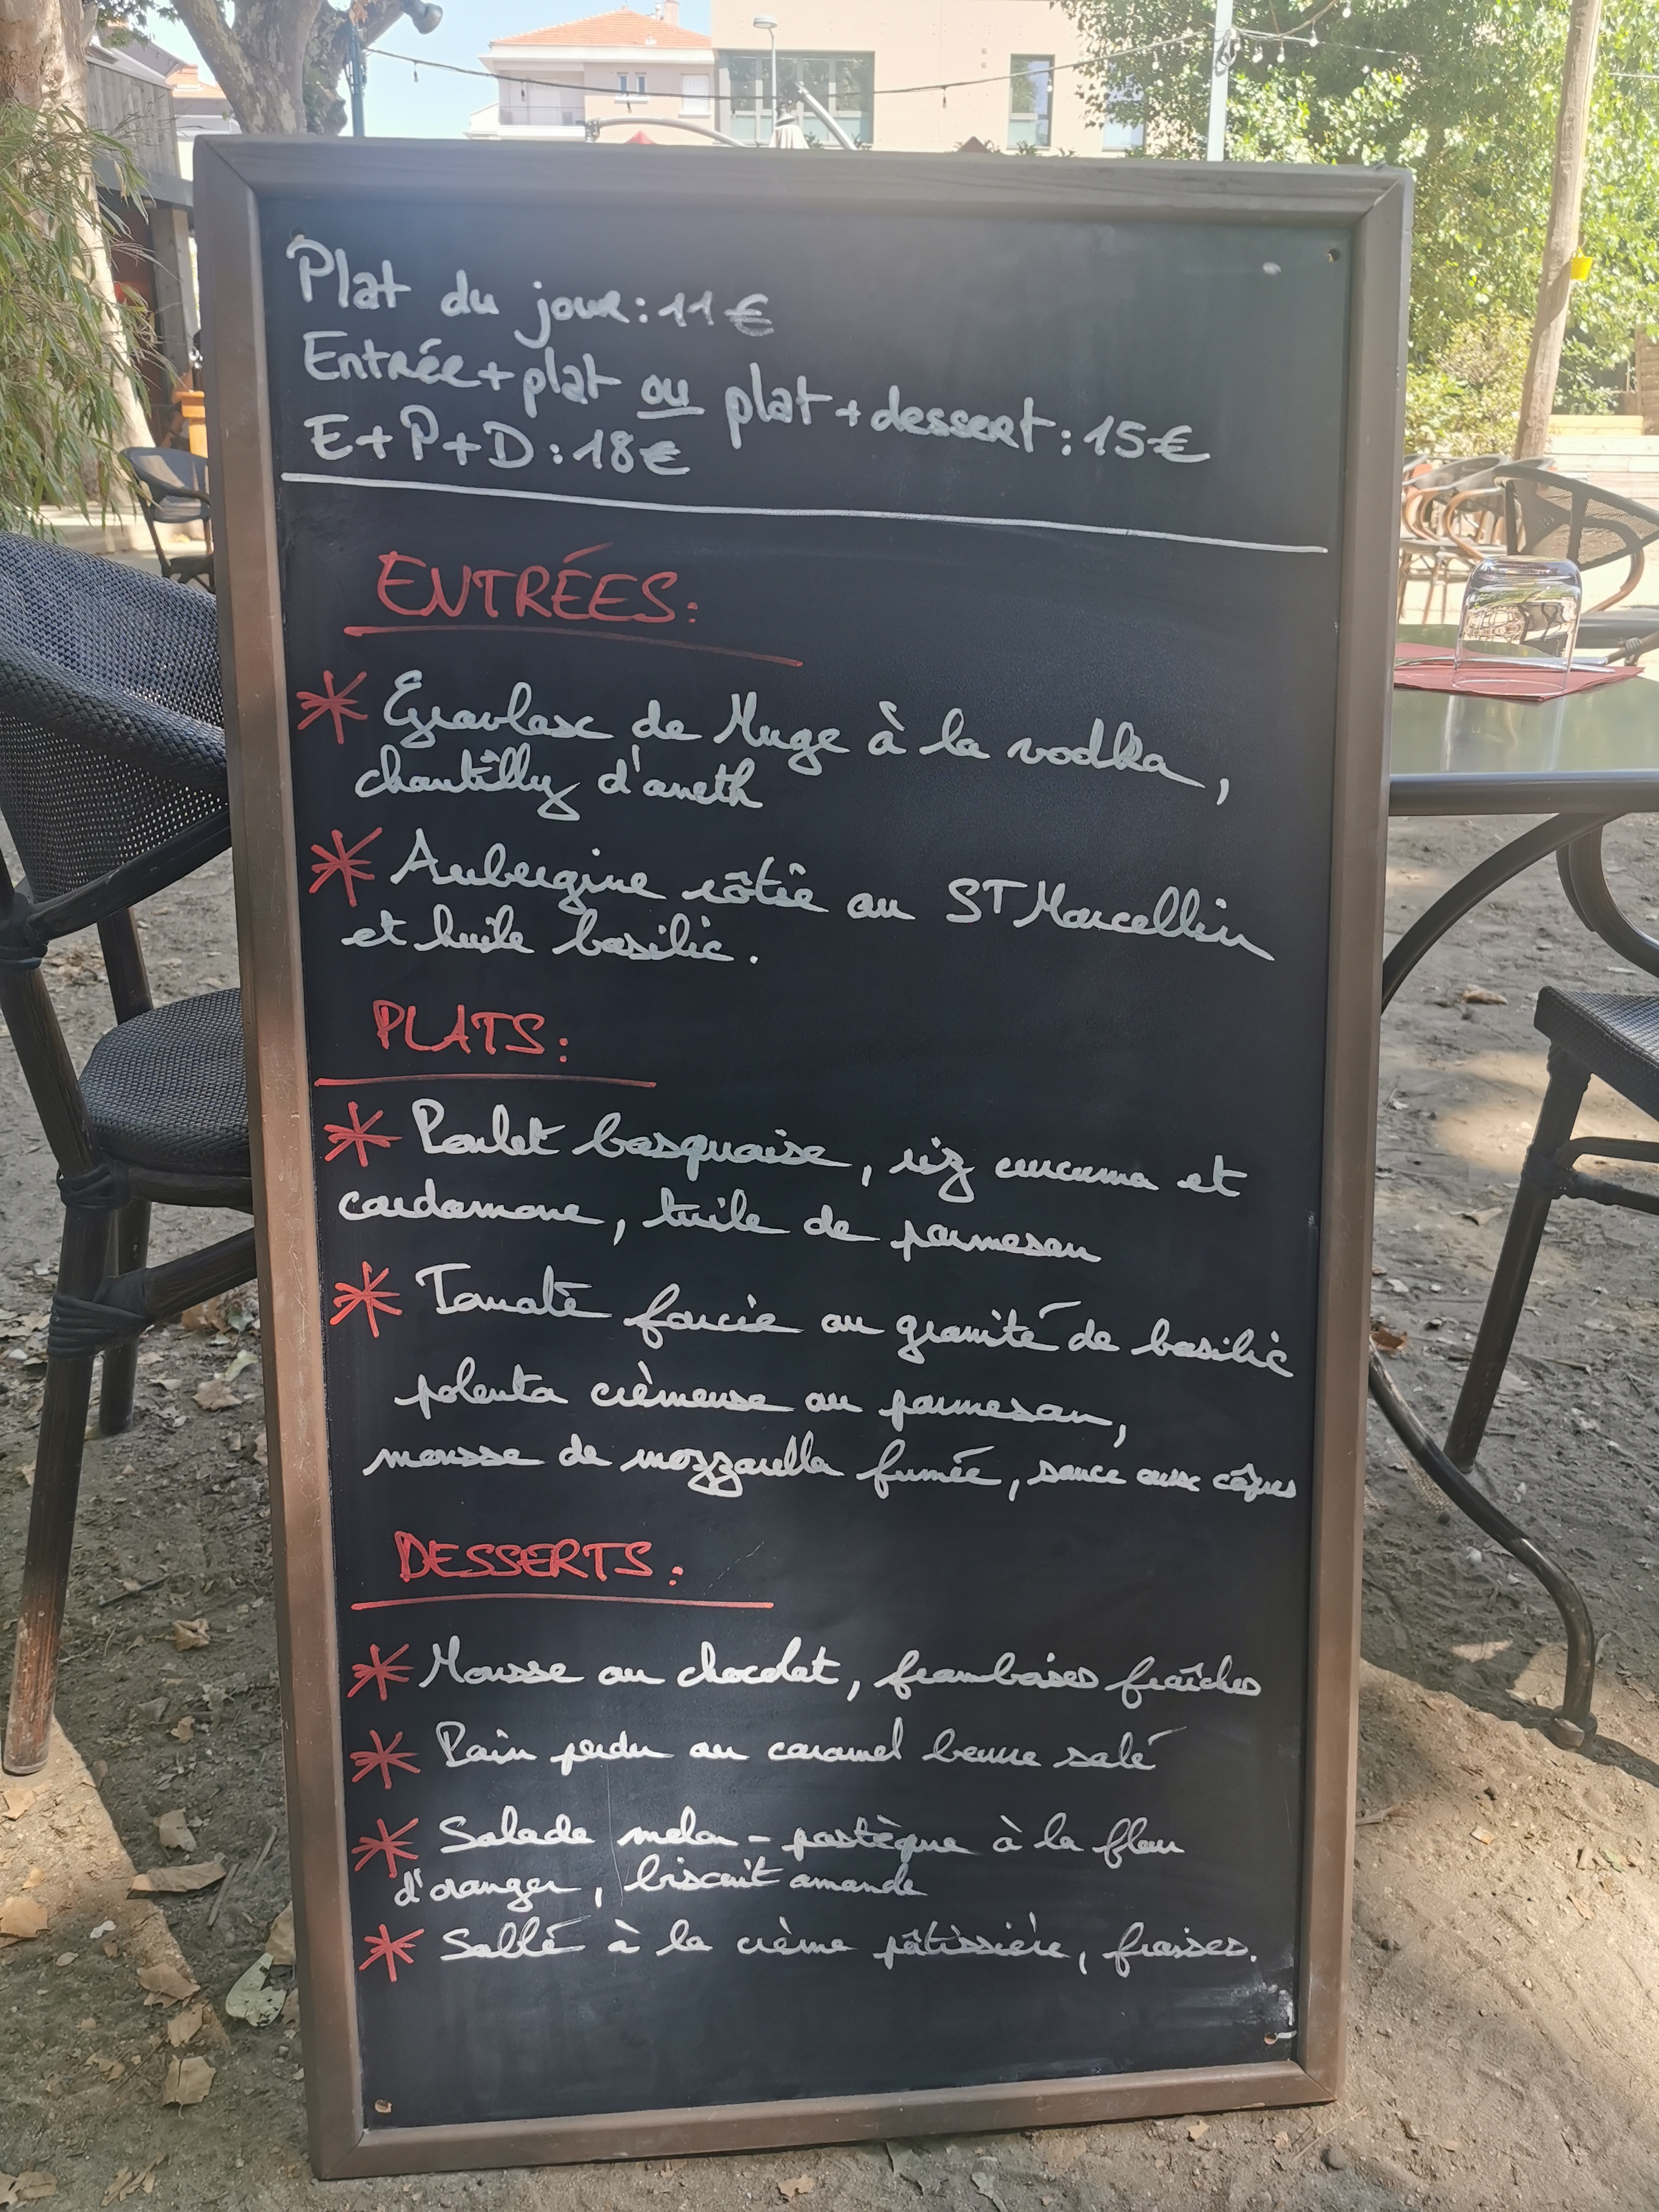 Plat du jour : 11€
Entrée + plat ou plat + dessert : 15€
E+P+D : 18€
ENTRÉES :
* Gravlax de Muge à la vodka,
chantilly d'aneth
* Aubergine rôtie au ST Marcellin
et huile basilic.
PLATS :
* Poulet basquaise, riz curcuma et
cardamone, tuile de parmesan
* Tomate farcie au granité de basilic
polenta crèmeuse au parmesan,
mousse de mozzarella fumée, sauce aux câpres
DESSERTS :
* Mousse au chocolat, framboises fraîches
* Pain perdu au caramel beurre salé
* Salade melon - pastèque à la fleur
d'oranger, biscuit amande
* Sablé à la crème pâtissière, fraises.